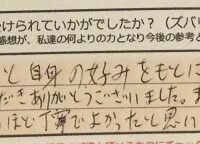 けられていかがでしたか？（ズバリ
感想が、私達の何よりの力となり今後の参考と
と自身の好みをもとに
だきありがとうございました。ま
ほど丁寧でよかったと思い